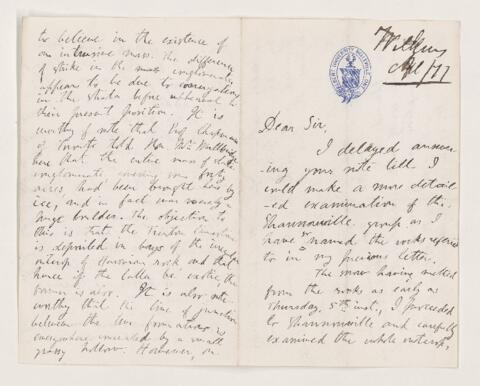 Wilkins
Apl/77
ALBERT UNIVERSITY BELLEVILLE, ONT.
Dear Sir,
I delayed answer-
-ing your note till I
could make a more detail-
-ed examination of the
Shannonville group, as I
have named the rocks referred
to in my previous letter.
The snow having melted
from the rocks as early as
Thursday, 5th inst., I proceeded
to Shannonville and carefully
examined the whole outcrop,
to believe in the existence of
an intrusive mass. The difference
of strike in the mass
appears to be due to
in the strata before upheaval to
their present position. It is
worthy of note that Prof Chapman
of Toronto told Hon. Mr.
here that the entire mass of slate
conglomerate covering some forty
acres, had been brought here by
ice, and in fact was merely a
huge boulder. The objection to
this is that the Trenton limestone
is deposited in bays of the
outcrop of Huronian rock and that
hence if the latter be exotic, the
former is also. It is also note-
worthy that the line of junction
between the two formations is
everywhere by a small
grassy hollow. However, on